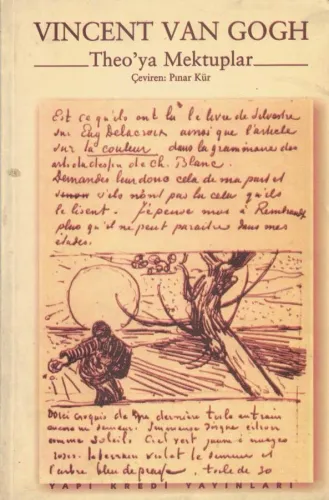 VINCENT VAN GOGH
Theo'ya Mektuplar
Çeviren: Pınar Kür
Est ce qu'ils ont lu le livre de Silvestre
sur Eug Delacroix ainsi que l'article
sur la couleur dans la grammaire des
arts du dessin de Ch. Blanc.
Demandez leur donc cela de ma part et
sinon s'ils n'ont pas lu cela qu'ils
le lisent. J'pense moi à Rembrandt
plus qu'il ne peut paraitre dans mes
études.
Voici croquis de ma dernière toile en train
encore un semeur. Immense disque citron
comme soleil. Ciel vert jaune à nuages
roses. le terrain violet le semeur et
l'arbre bleu de prusse. toile de 30
YAPI KREDİ YAYINLARI